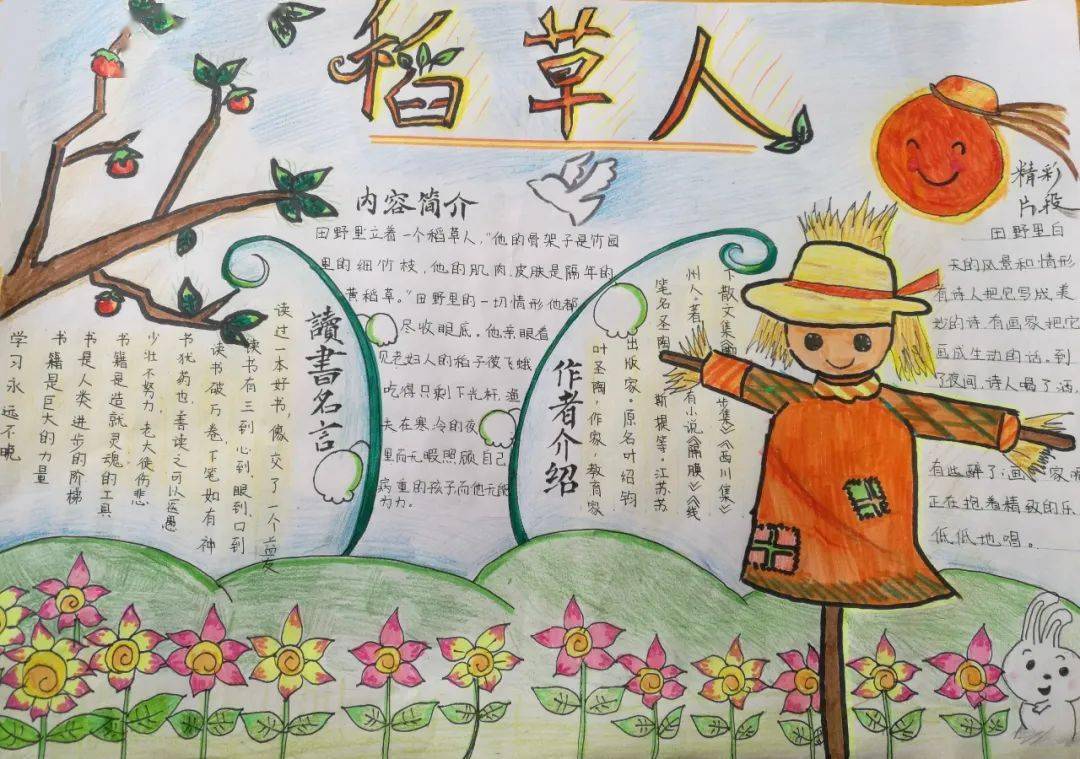 稻草人
内容简介
田野里立着一个稻草人，"他的骨架子是竹园
里的细竹枝，他的肌肉、皮肤是隔年的
黄稻草。"田野里的一切情形他都
尽收眼底。他亲眼看
见老妇人的稻子被飞蛾
吃得只剩下光杆，渔
夫在寒冷的夜
里而无暇照顾自己
病重的孩子而他无能
为力。
讀書名言
读过一本好书，像交了一个益友
读书有三到，心到眼到口到
读书破万卷，下笔如有神
书犹药也，善读之可以医愚
少壮不努力，老大徒伤悲
书籍是造就灵魂的工具
书是人类进步的阶梯
书籍是巨大的力量
学习永远不晚
作者介绍
叶圣陶，作家，教育家
出版家。原名叶绍钧
笔名圣陶、斯提等。江苏苏
州人。著有小说《隔膜》《线
下散文集《步集》《西川集》
精彩
片段
田野里白
天的风景和情形
有诗人把它写成美
妙的诗，有画家把它
画成生动的话。到
了夜间，诗人喝了酒，
有些醉了；画家呢
正在抱着精致的乐
低低地唱。